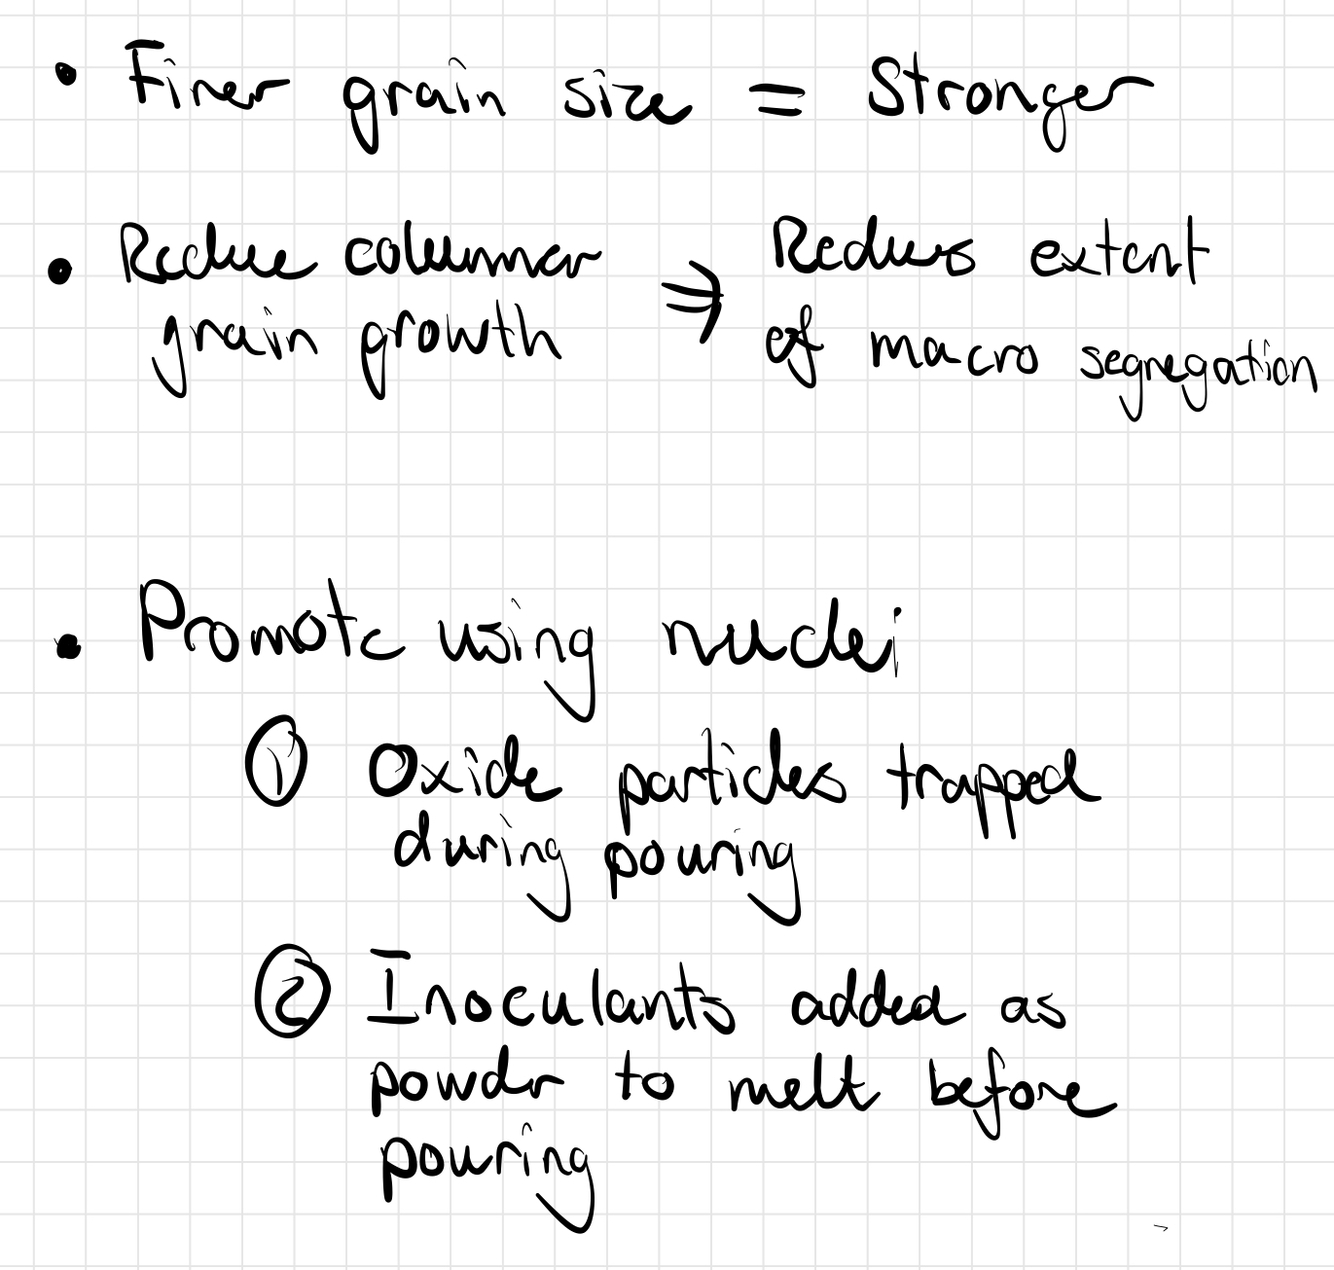 • Finer grain size = Stronger
• Reduce columnar ⇒ Reduces extent
grain growth of macro segregation
• Promote using nuclei
① Oxide particles trapped
during pouring
② Inoculants added as
powder to melt before
pouring